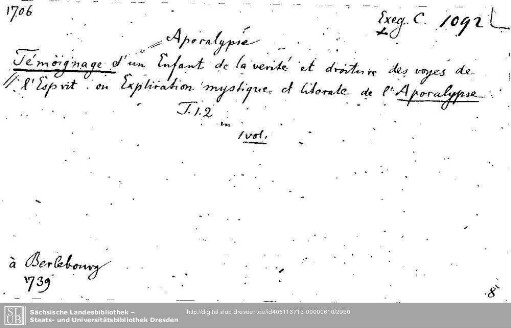 1706
Exeg. C. 1092
Apocalypse
Témoignage d'un Enfant de la verité et droiture des voyes de
l'Esprit ou Explication mystique et literale de l'Apocalypse
T. 1. 2
in
1 vol.
à Berlebourg
739
8
Sächsische Landesbibliothek –
Staats- und Universitätsbibliothek Dresden